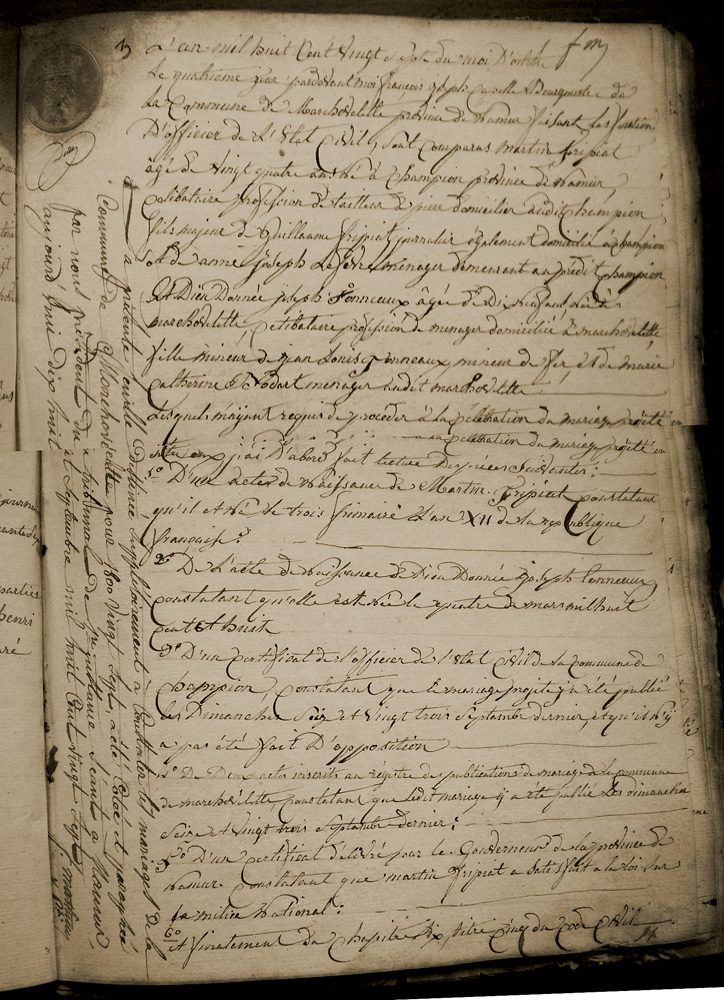 3
L'an mil huit Cent vingt sept du moi D'octobre
Le quatrième jour pardevant moi françois joseph Capelle Bourgmestre de
la Commune de Marchovelette province de Namur faisant les fonction
D'officier de L'Etat Civil, sont Comparus Martin fripiat
âgé de vingt quatre ans né à Champion province de Namur,
Celibataire profession de tailleur de pierre domicilier audit Champion
fils majeur de Guillaume fripiat journalier également domicilié à Champion
et de anne joseph ménager demeurant au prédit Champion
Et Dieu Donnée joseph Lonneux âgée de Dix neuf ans née à
marchovelette, Celibataire profession de menager domiciliée à marchovelette
fille mineur de jean Louis Lonneaux mineur de fer et de marie
Catherine Nodart menager audit marchovelette
Lesquels m'ayant requis de procéder à la Célébration du mariage projeté en
à la Célébration du mariage projeté en
eux j'ai D'abord fait lecture des pièces suivantes :
1° D'un acte de Naissance de Martin Fripiat Constatant
qu'il est né le trois frimaire L'an XII de la république
française :
2° De L'acte de Naissance de Dieu Donnée joseph Lonneux
Constatant qu'elle est née le quatre de mars mil huit
Cent et huit
3° D'un Certificat de l'officier de l'Etat Civil de la Commune de
Champion, Constatant que le mariage projeté y a été publié
les Dimanches Seize et vingt trois Septembre dernier, et qu'il n'y
a pas été fait D'opposition
4° De Deux actes inscrits au régistre des publications de mariage de la Commune
de marchovelette Constatant que ledit mariage y a été publié Les dimanches
Seize et vingt trois Septembre dernier :
5° D'un Certificat délivré par le Gouverneur de la province de
Namur Constatant que martin fripiat a satisfait à la loi sur
la milice National :
6° Et finalement du Chapitre Six, titre Cinq du Code Civil
La présente feuille Destinée Supplétoirement à Constater les mariages de la
Commune de Marchovelette pour 1800 vingt Sept a été Cotée et paraphée
par nous président du tribunal de 1re instance Séant à Namur,
aujourd'hui dix huit Septembre mil huit Cent vingt Sept